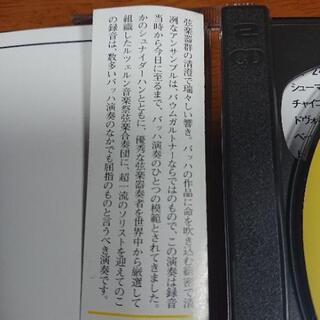 弦楽器群の清澄で瑞々しい響き。バッハの作品に命を吹き込む緻密で清
冽なアンサンブルは、バウムガルトナーならではのもので、この演奏は録音
当時から今日に至るまで、バッハ演奏のひとつの模範とされてきました。
かのシュナイダーハンとともに、優秀な弦楽器奏者を世界中から厳選して
組織したルツェルン音楽祭弦楽合奏団に、超一流のソリストを迎えてのこ
の録音は、数多いバッハ演奏のなかでも屈指のものと言うべき演奏です。
シューマ
チャイコ
ドヴォ